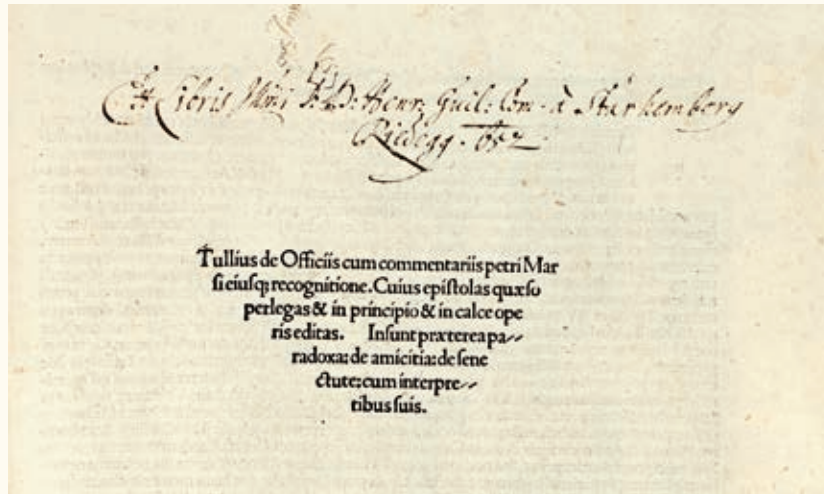 Ex Libris D: Henr: Guil: Com. à Starhemberg
Riedegg.
Tullius de Officiis cum commentariis petri Mar
si eiusq; recognitione. Cuius epistolas quæso
perlegas & in principio & in calce ope
ris editas. Insunt præterea pa//
radoxa: de amicitia: de sene
ctute: cum interpre//
tibus suis.